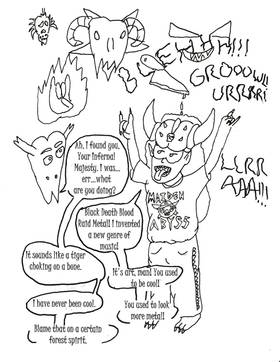 BLEHHH!!!
GROOOWW!!
URRRR!
Ah, I found you,
Your Infernal
Majesty. I was...
err...what
are you doing?
MAIDEN
ABYSS
LLRR
AAA!!!
Black Death Blood
Raid Metal! I invented
a new genre of
music!
It sounds like a tiger
choking on a bone.
It's art, man! You used
to be cool!
I have never been cool.
You used to look
more metal!
Blame that on a certain
forest spirit.